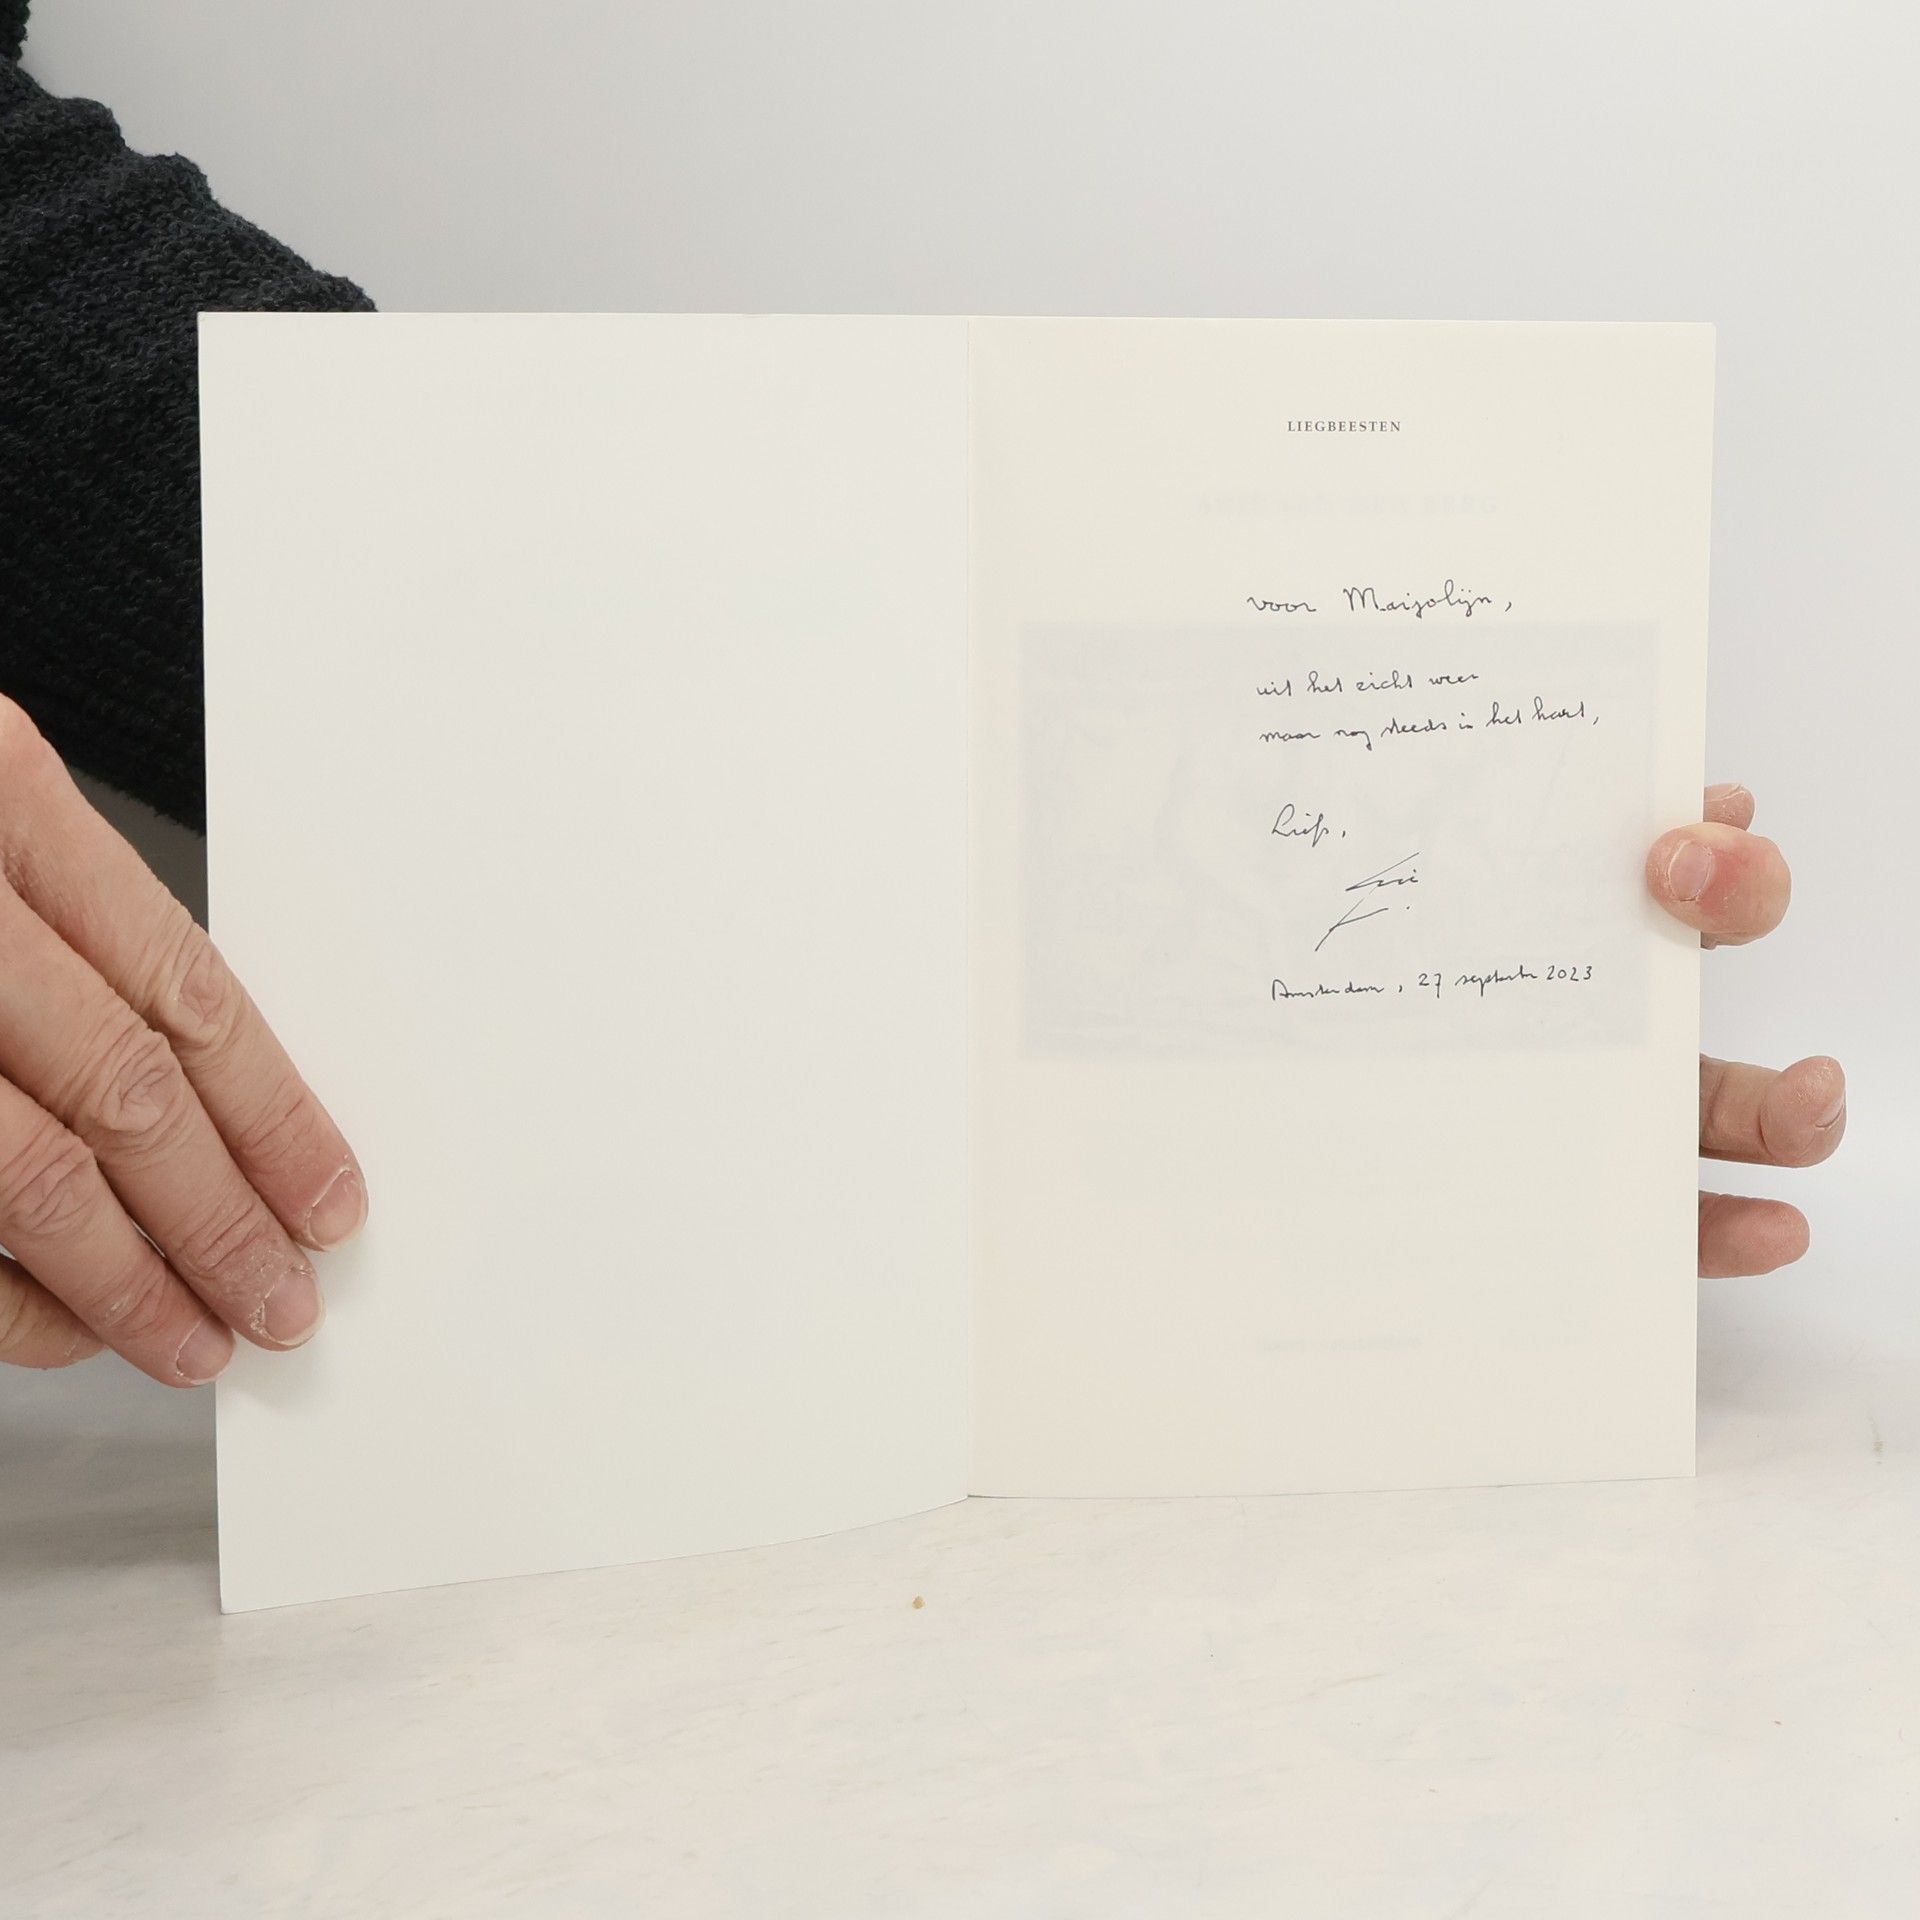 LIEGBEESTEN
voor Marjolijn,
uit het zicht weer
maar nog steeds in het hart,
Liefs,
Amsterdam, 27 september 2023